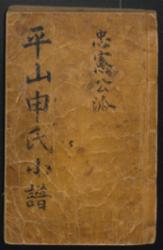 忠憲公派
平山申氏小譜